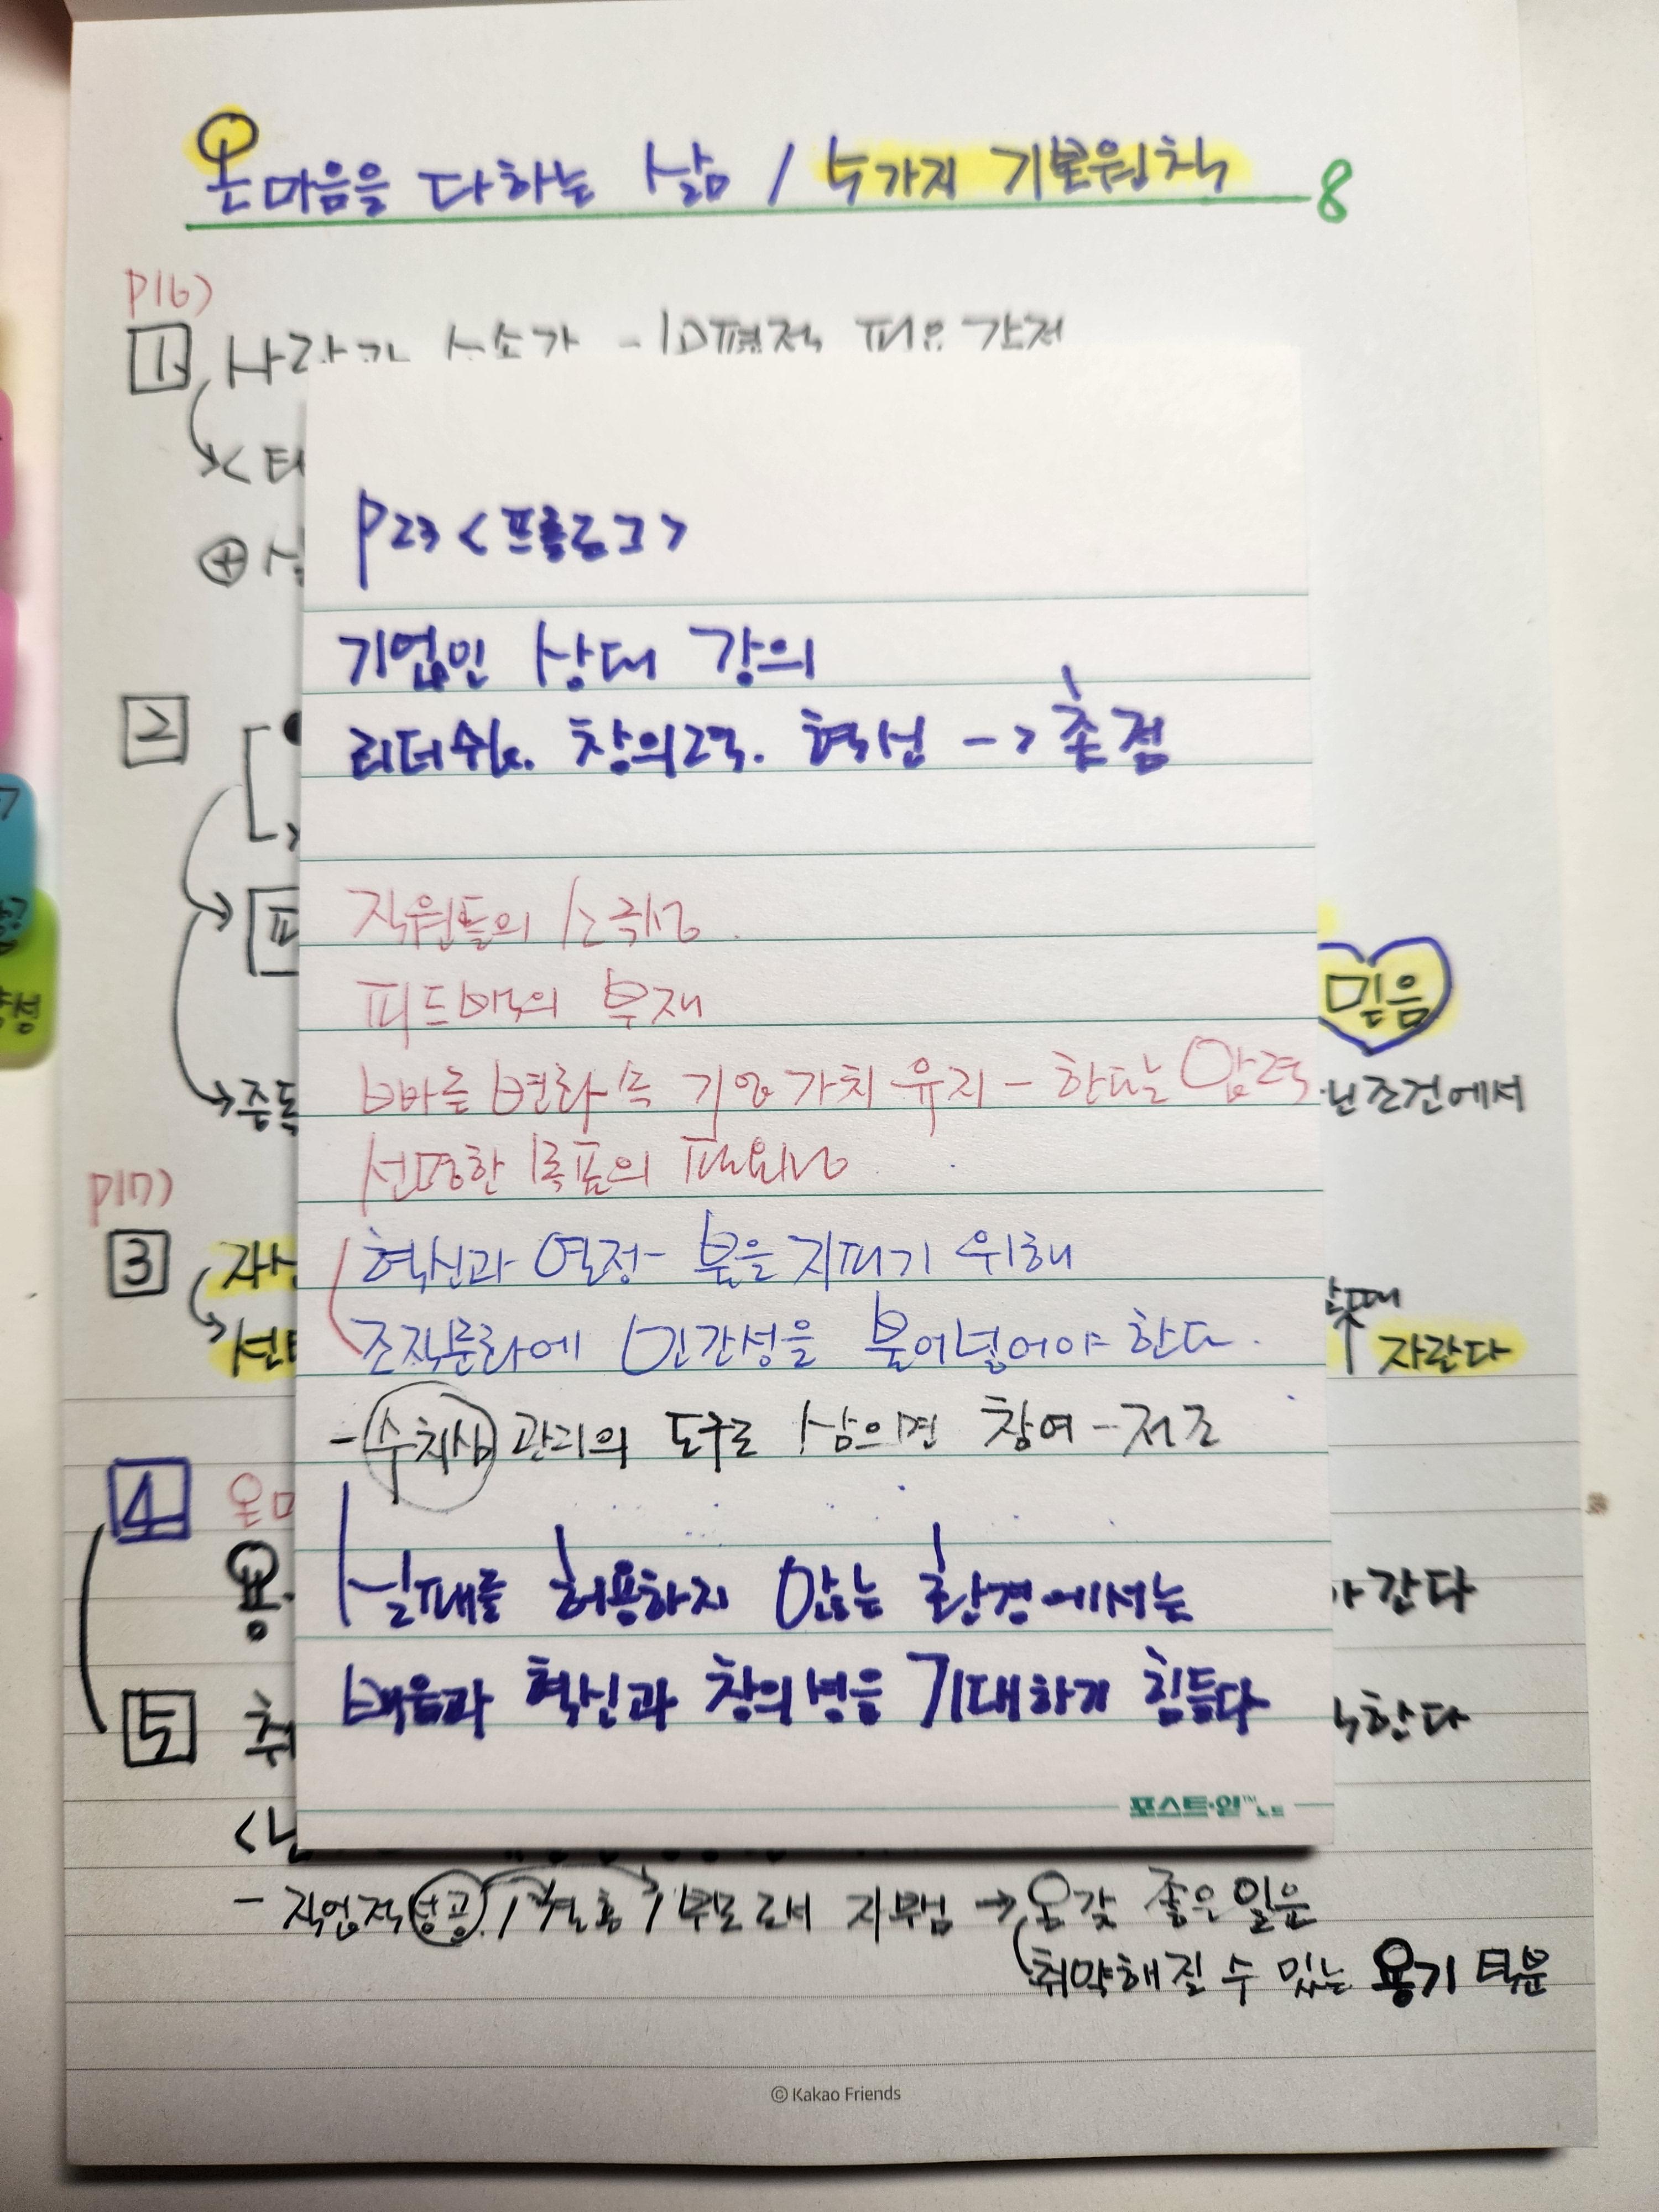 온 마음을 다하는 삶 / 5가지 기본원칙 8
P16)
1
<
2
믿음
→중독
조건에서
P17)
3
자란다
4
간다
5
한다
p23 <프롤로그>
기업인 상대 강의
리더쉽. 창의력. 혁신 -> 초점
직원들의 소극성
피드백의 부재
빠른 변화 속 기업 가치 유지 - 한다는 압력
선명한 목표의 필요성
혁신과 열정 - 불을 지피기 위해
조직문화에 인간성을 불어넣어야 한다.
- 수치심 관리의 도구로 삼으면 참여 - 저조
실패를 허용하지 않는 환경에서는
배움과 혁신과 창의성을 기대하기 힘들다
포스트·잇™ 노트
- 직업적 성공 / 결혼 / 부모로서 자부심 → 온갖 좋은 일은
취약해질 수 있는 용기 덕분
© Kakao Friends